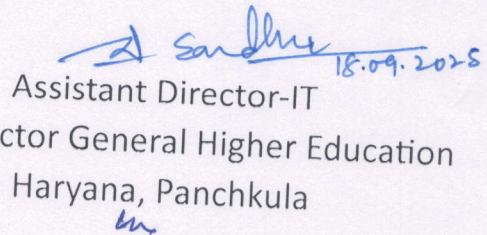 Sandhu
18.09.2025
Assistant Director-IT
ctor General Higher Education
Haryana, Panchkula